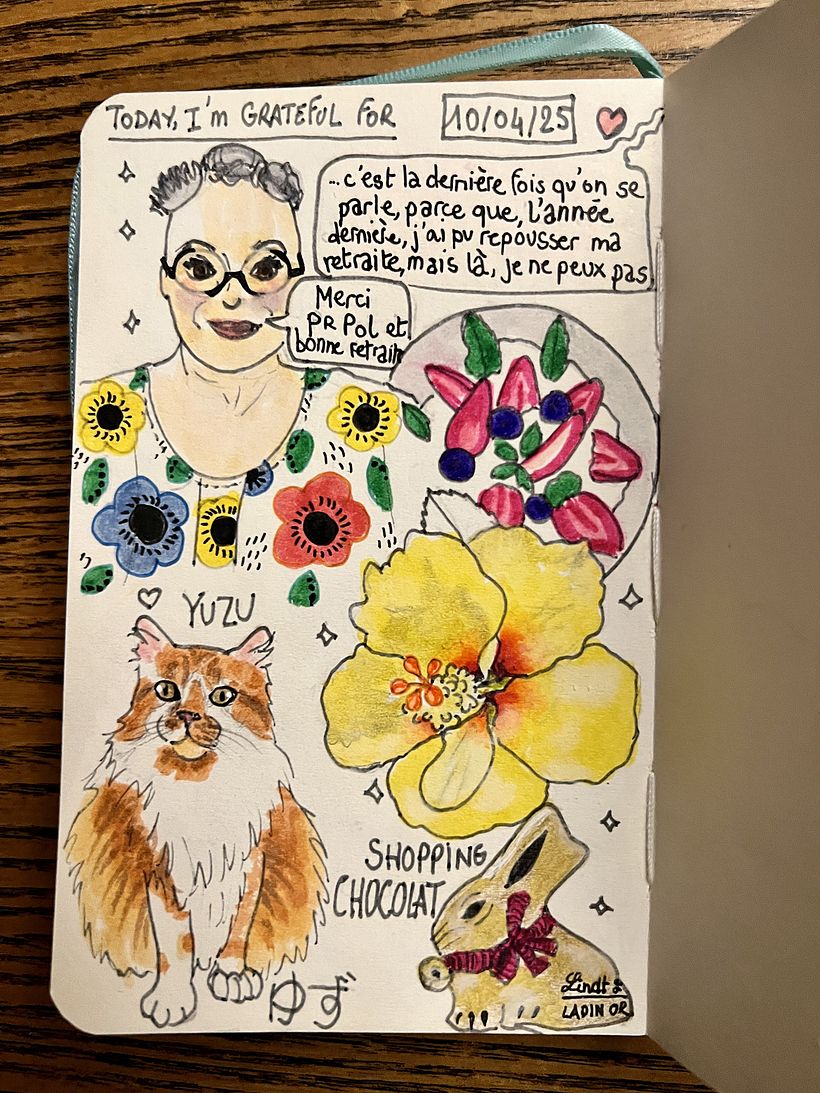 TODAY, I'm GRATEFUL FOR
10/04/25
...c'est la dernière fois qu'on se
parle, parce que, l'année
dernière, j'ai pu repousser ma
retraite, mais là, je ne peux pas
Merci
PR Pol et
bonne retraite
YUZU
SHOPPING
CHOCOLAT
ゆず
Lindt
LAPIN OR